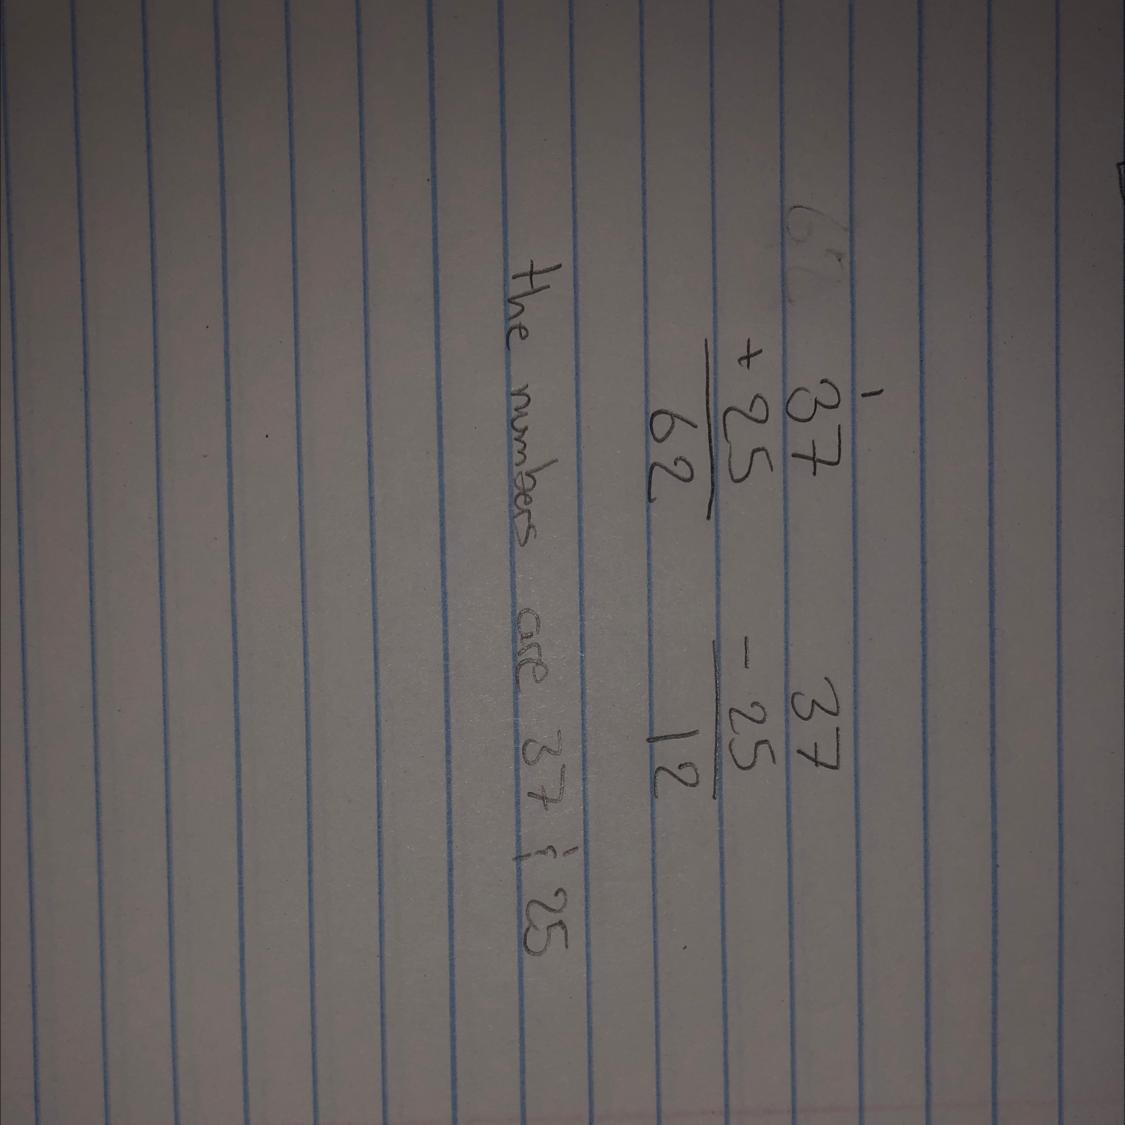 1
37 37
+ 25 - 25
62 12
the numbers are 37 & 25